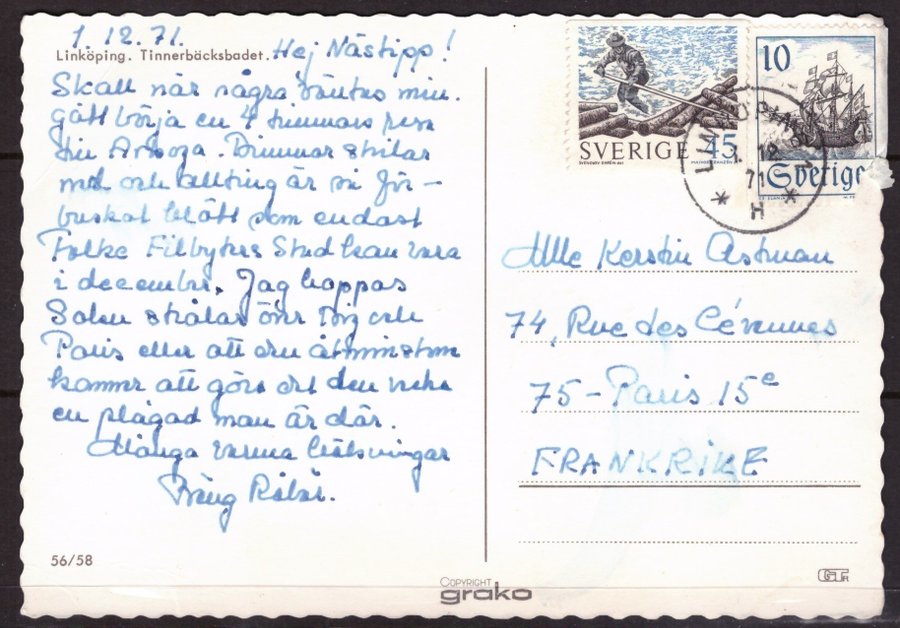 1.12.71.
Linköping. Tinnerbäcksbadet.
Hej Nästipp!
Skall när några väntes min.
gått börja en 4 timmars resa
till Arboga.
med och allting är för-
blått som endast
Folke Filbyters Stad kan vara
i december. Jag hoppas
Solen strålar över Dig och
Paris eller att den åtminstone
kommer att göra det den vecka
en plågad man är där.
Många varma hälsningar
SVERIGE 45
10
Sverige
LINKÖPING
71
* H *
Mlle Kerstin Astman
74, Rue des Cévennes
75-Paris 15e
FRANKRIKE
56/58
COPYRIGHT
grako